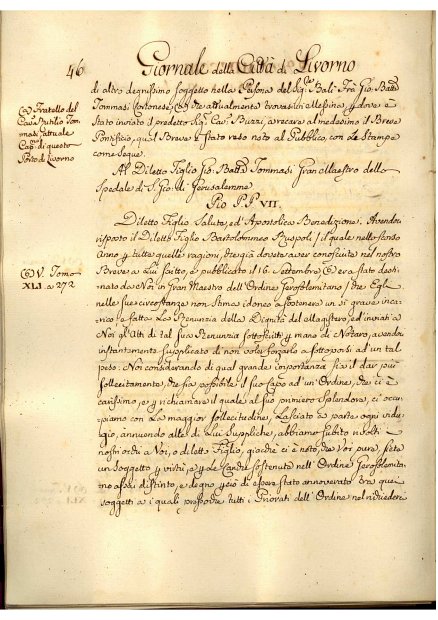 46 Giornale della Città di Livorno
di altro degnissimo soggetto nella Persona del Sig.re Balì Frà Gio: Batta
Tommasi Cortonese, (a) che attualmente trovasi in Messina, e dove è
stato inviato il predetto Sig.r Cav.r Buzzi, a recare al medesimo il Breve
Pontificio, qual Breve è stato reso noto al Pubblico, con le Stampe
come segue.
(a) Fratello del
Cav.r Rutilio Tom
masi attuale
Cap.no di questo
Porto di Livorno
Al Diletto Figlio Gio: Batta Tommasi Gran Maestro dello
Spedale di S. Gio: di Gerusalemme
Pio P.P. VII.
Diletto Figlio Salute, ed' Apostolica Benedizione. Avendo
risposto il Diletto Figlio Bartolommeo Ruspoli / il quale nello scorso
Anno p. tutte quelle ragioni, che già dovete aver conosciute nel nostro
Breve a Lui fatto, e pubblicato il 16. Settembre (b) era stato desti
nato da Noi in Gran Maestro dell'Ordine Gerosolimitano / che Egli
nelle sue circostanze non stima idoneo a sostenere un sì grave inca-
rico e fatta la Renunzia della Dignità del Magistero, ed inviati a
Noi gli Atti di tal sua Renunzia sottoscritti p. mano di Notaro, avendo
instantemente supplicato di non voler forzarlo a sottoporsi ad un tal
peso: Noi considerando di qual grande importanza sia il dar più
sollecitamente, che sia possibile il suo Capo ad un' Ordine, che ci è
carissimo, e p. richiamare il quale al suo primiero splendore, ci occu
piamo con la maggior sollecitudine, lasciato a parte ogni indu
gio, annuendo alle di Lui suppliche, abbiamo subito rivolti i
nostri occhi a Voi, o diletto Figlio, giacchè ci è noto, che Voi pure siete
un soggetto p. virtù, e p. le Cariche sostenute nell' Ordine Gerosolimita-
no assai distinto, e degno p. ciò di essere stato annoverato tra quei
soggetti a i quali prescelse tutti i Priorati dell' Ordine nel richiedere
(b) V. Tomo
XLI. a 272